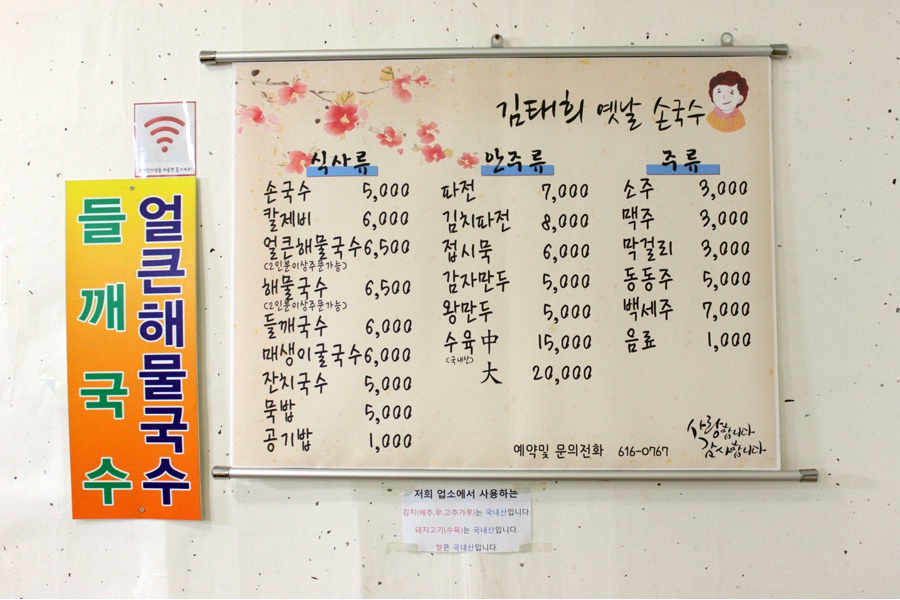 김태희 옛날 손국수
식사류
손국수 5,000
칼제비 6,000
얼큰해물국수 6,500
(2인분이상주문가능)
해물국수 6,500
(2인분이상주문가능)
들깨국수 6,000
매생이굴국수 6,000
잔치국수 5,000
묵밥 5,000
공기밥 1,000
안주류
파전 7,000
김치파전 8,000
접시묵 6,000
감자만두 5,000
왕만두 5,000
수육 中 15,000
(국내산)
大 20,000
주류
소주 3,000
맥주 3,000
막걸리 3,000
동동주 5,000
백세주 7,000
음료 1,000
사랑합니다
감사합니다
예약및 문의전화 616-0767
얼큰해물국수
들깨국수
저희 업소에서 사용하는
김치(배추,무,고추가루)는 국내산입니다.
돼지고기(수육)는 국내산입니다.
쌀은 국내산입니다.